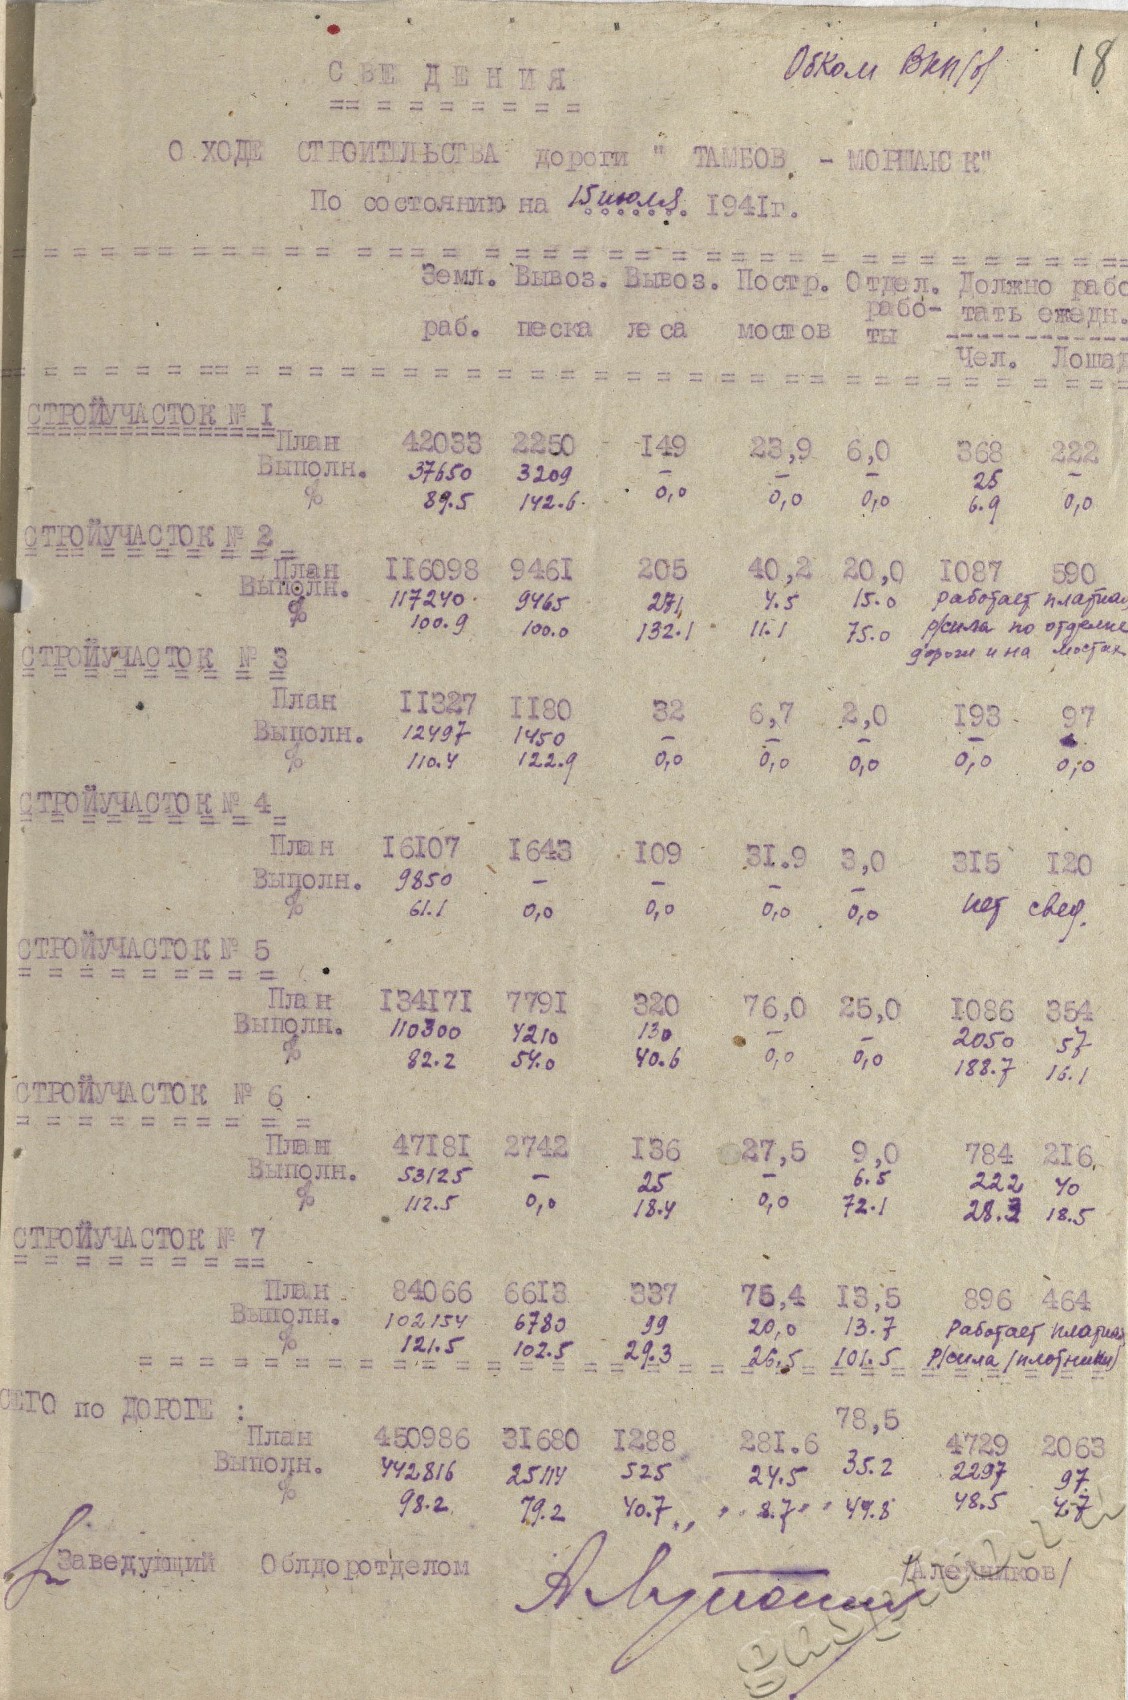 Обком ВКП/б/ 18
СВЕДЕНИЯ
О ХОДЕ СТРОИТЕЛЬСТВА дороги " ТАМБОВ - МОРШАНСК"
По состоянию на 15 июля 1941г.
Земл. Вывоз. Вывоз. Постр. Отдел. Должно рабо
раб. песка леса мостов рабо- тать ежедн.
ты
Чел. Лошад
СТРОЙУЧАСТОК № 1
План 42033 2250 149 23,9 6,0 368 222
Выполн. 37650 3209 - - - 25 -
% 89.5 142.6 0,0 0,0 0,0 6.9 0,0
СТРОЙУЧАСТОК № 2
План 116098 9461 205 40,2 20,0 1087 590
Выполн. 117240 9465 271 4.5 15.0 работает платная
% 100.9 100.0 132.1 11.1 75.0 р/сила по отделке
дороги и на мостах
СТРОЙУЧАСТОК № 3
План 11327 1180 32 6,7 2,0 193 97
Выполн. 12497 1450 - - - - -
% 110.4 122.9 0,0 0,0 0,0 0,0 0,0
СТРОЙУЧАСТОК № 4
План 16107 1643 109 31.9 3,0 315 120
Выполн. 9850 - - - -
% 61.1 0,0 0,0 0,0 0,0 нет свед.
СТРОЙУЧАСТОК № 5
План 134171 7791 320 76,0 25,0 1086 354
Выполн. 110300 4210 130 - - 2050 57
% 82.2 54.0 40.6 0,0 0,0 188.7 16.1
СТРОЙУЧАСТОК № 6
План 47181 2742 136 27,5 9,0 784 216
Выполн. 53125 - 25 - 6.5 222 40
% 112.5 0,0 18.4 0,0 72.1 28.3 18.5
СТРОЙУЧАСТОК № 7
План 84066 6613 337 75,4 13,5 896 464
Выполн. 102154 6780 99 20,0 13.7 Работает платная
% 121.5 102.5 29.3 26.5 101.5 р/сила /плотники/
СЕГО по ДОРОГЕ :
План 450986 31680 1288 281.6 78,5 4729 2063
Выполн. 442816 25114 525 24.5 35.2 2297 97
% 98.2 79.2 40.7 8.7 44.8 48.5 4.7
Заведующий Облдоротделом /Алейников/